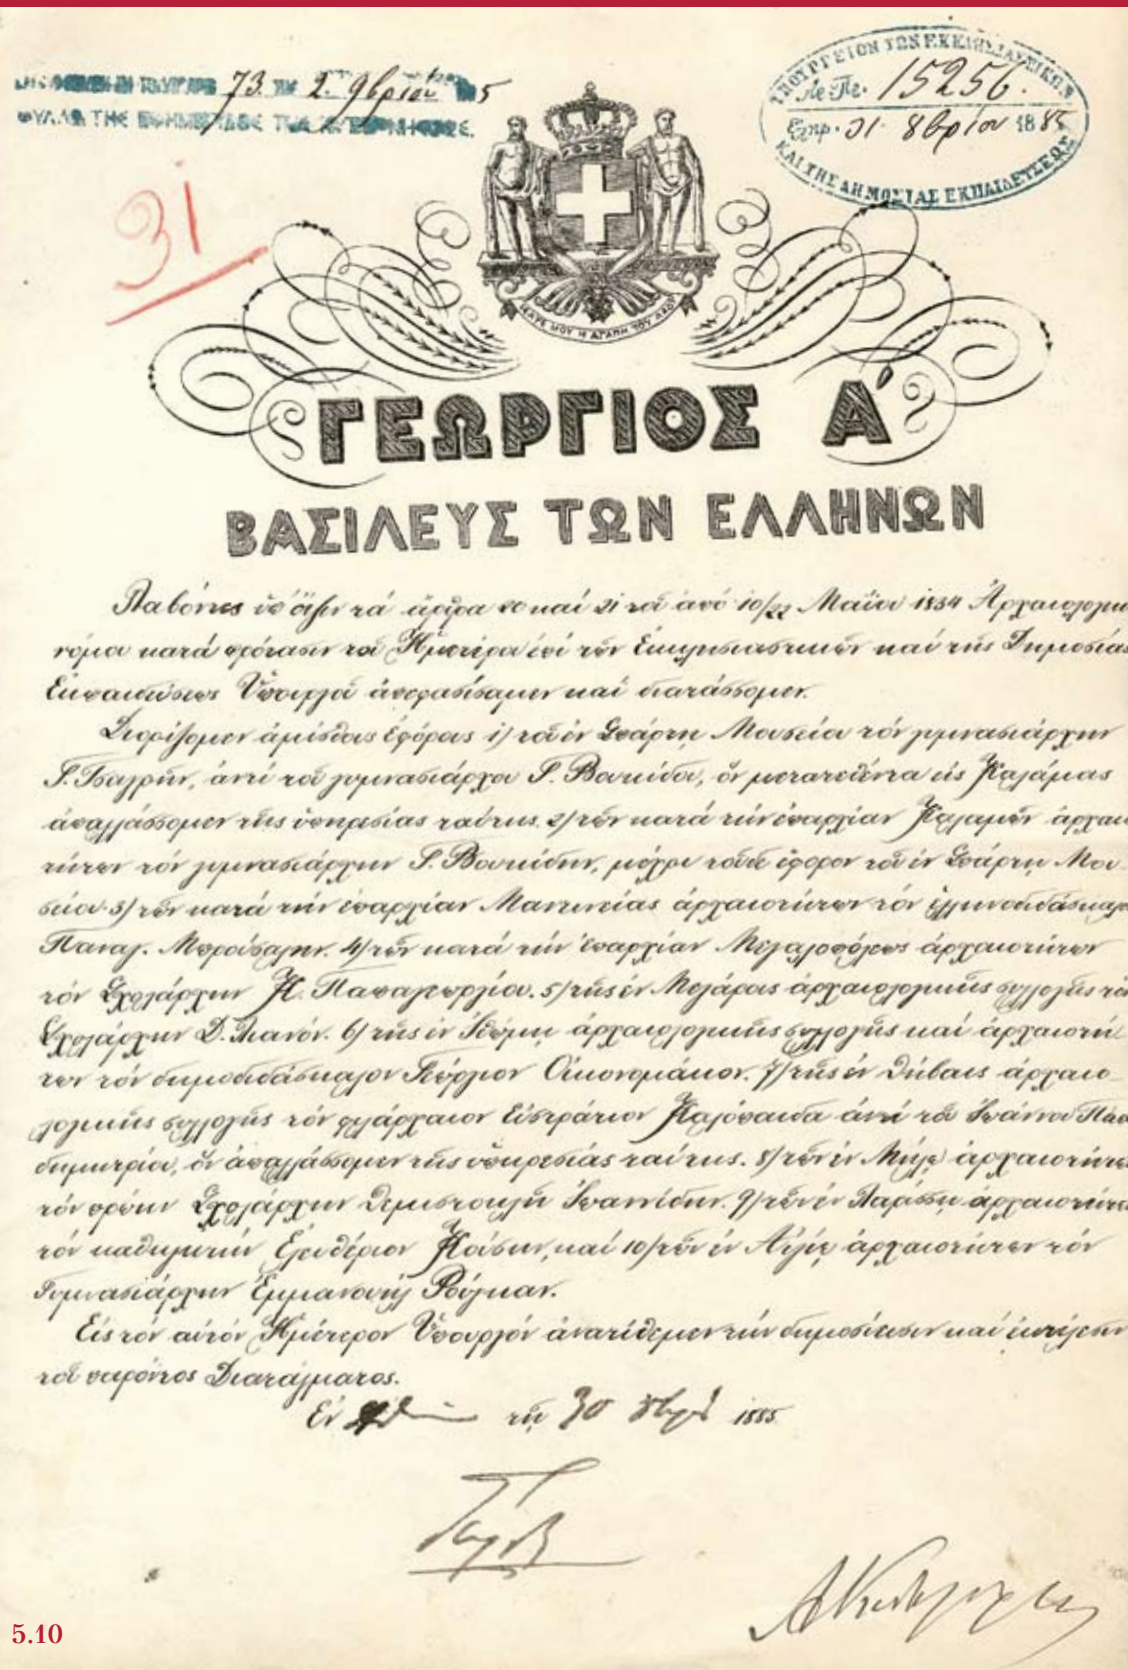 73. 2. 9βρίου 5
ΥΠΟΥΡΓΕΙΟΝ ΤΩΝ ΕΚΚΛΗΣΙΑΣΤΙΚΩΝ
Ἀρ. Πρ. 15256.
31 8βρίου 1885
ΚΑΙ ΤΗΣ ΔΗΜΟΣΙΑΣ ΕΚΠΑΙΔΕΥΣΕΩΣ
31
Η ΑΓΑΠΗ ΤΟΥ ΛΑΟΥ
ΓΕΩΡΓΙΟΣ Α΄
ΒΑΣΙΛΕΥΣ ΤΩΝ ΕΛΛΗΝΩΝ
Λαβόντες ὑπ' ὄψιν τά ἄρθρα 20 καί 21 τοῦ ἀπό 10/22 Μαΐου 1834 Ἀρχαιολογικ
νόμου κατά πρότασιν τοῦ Ἡμετέρου ἐπί τῶν Ἐκκλησιαστικῶν καί τῆς Δημοσίας
Ἐκπαιδεύσεως Ὑπουργοῦ ἀπεφασίσαμεν καί διατάσσομεν.
Διορίζομεν ἀμίσθους ἐφόρους 1) τοῦ ἐν Σπάρτῃ Μουσείου τόν γυμνασιάρχην
ἀντί τοῦ γυμνασιάρχου Βουκίδου, ὅν μετατεθέντα εἰς Καλάμας
ἀπαλλάσσομεν τῆς ὑπηρεσίας ταύτης. 2) τῶν κατά τήν ἐπαρχίαν Καλαμῶν ἀρχαι
τήτων τόν γυμνασιάρχην Βουκίδην, μέχρι τοῦδε ἔφορον τοῦ ἐν Σπάρτῃ Μου-
σείου. 3) τῶν κατά τήν ἐπαρχίαν Μαντινείας ἀρχαιοτήτων τόν ἑλληνοδιδάσκαλο
Παναγ. 4) τῶν κατά τήν ἐπαρχίαν Μεγαλοπόλεως ἀρχαιοτήτων
τόν Σχολάρχην Παπαγεωργίου. 5) τῆς ἐν Μεγάροις ἀρχαιολογικῆς συλλογῆς τόν
Σχολάρχην Δ. 6) τῆς ἐν Ἰθώμῃ ἀρχαιολογικῆς συλλογῆς καί ἀρχαιοτή-
των τόν δημοδιδάσκαλον Γεώργιον Οἰκονομάκον. 7) τῆς ἐν Θήβαις ἀρχαιο-
λογικῆς συλλογῆς τόν φιλάρχαιον Εὐστράτιον Καλόπαιδα ἀντί τοῦ Ἰωάννου Παπ
δημητρίου, ὅν ἀπαλλάσσομεν τῆς ὑπηρεσίας ταύτης. 8) τῶν ἐν Μήλῳ ἀρχαιοτήτω
τόν πρώην Σχολάρχην Θεμιστοκλῆ Ἰωαννίδην. 9) τῶν ἐν Λαρίσσῃ ἀρχαιοτήτω
τόν καθηγητήν Ἐλευθέριον Κούσην, καί 10) τῶν ἐν Αἰγίῳ ἀρχαιοτήτων τόν
Γυμνασιάρχην Ἐμμανουήλ Ρούγκαν.
Εἰς τόν αὐτόν Ἡμέτερον Ὑπουργόν ἀνατίθεμεν τήν δημοσίευσιν καί ἐκτέλεσιν
τοῦ παρόντος Διατάγματος.
Ἐν τῇ 30 1885
5.10